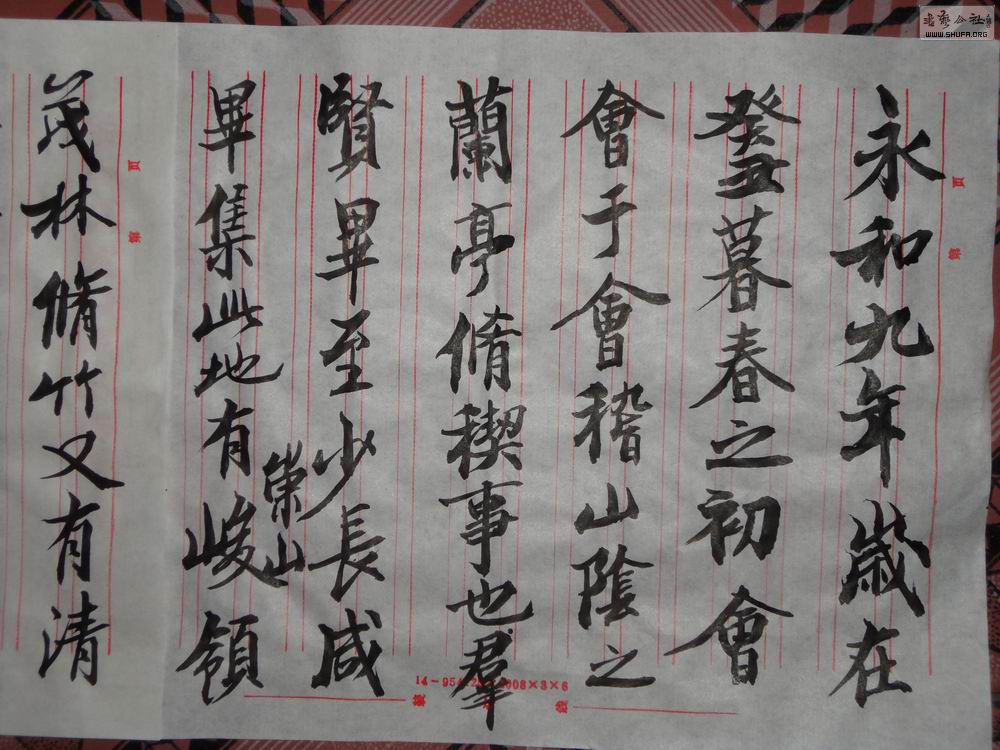 永和九年歲在
癸丑暮春之初會
會于會稽山陰之
蘭亭脩稧事也羣
賢畢至少長咸
崇山
畢集此地有峻領
茂林脩竹又有清
第 页
第 页
書藝公社
WWW.SHUFA.ORG